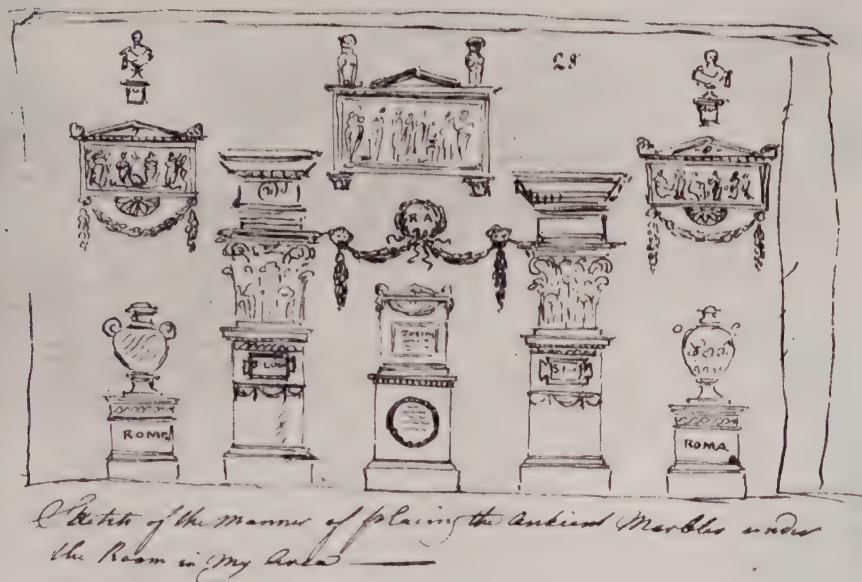 28
R A
ROMA
ROMA
Sketch of the manner of placing the Antient Marbles under
the Room in my Area